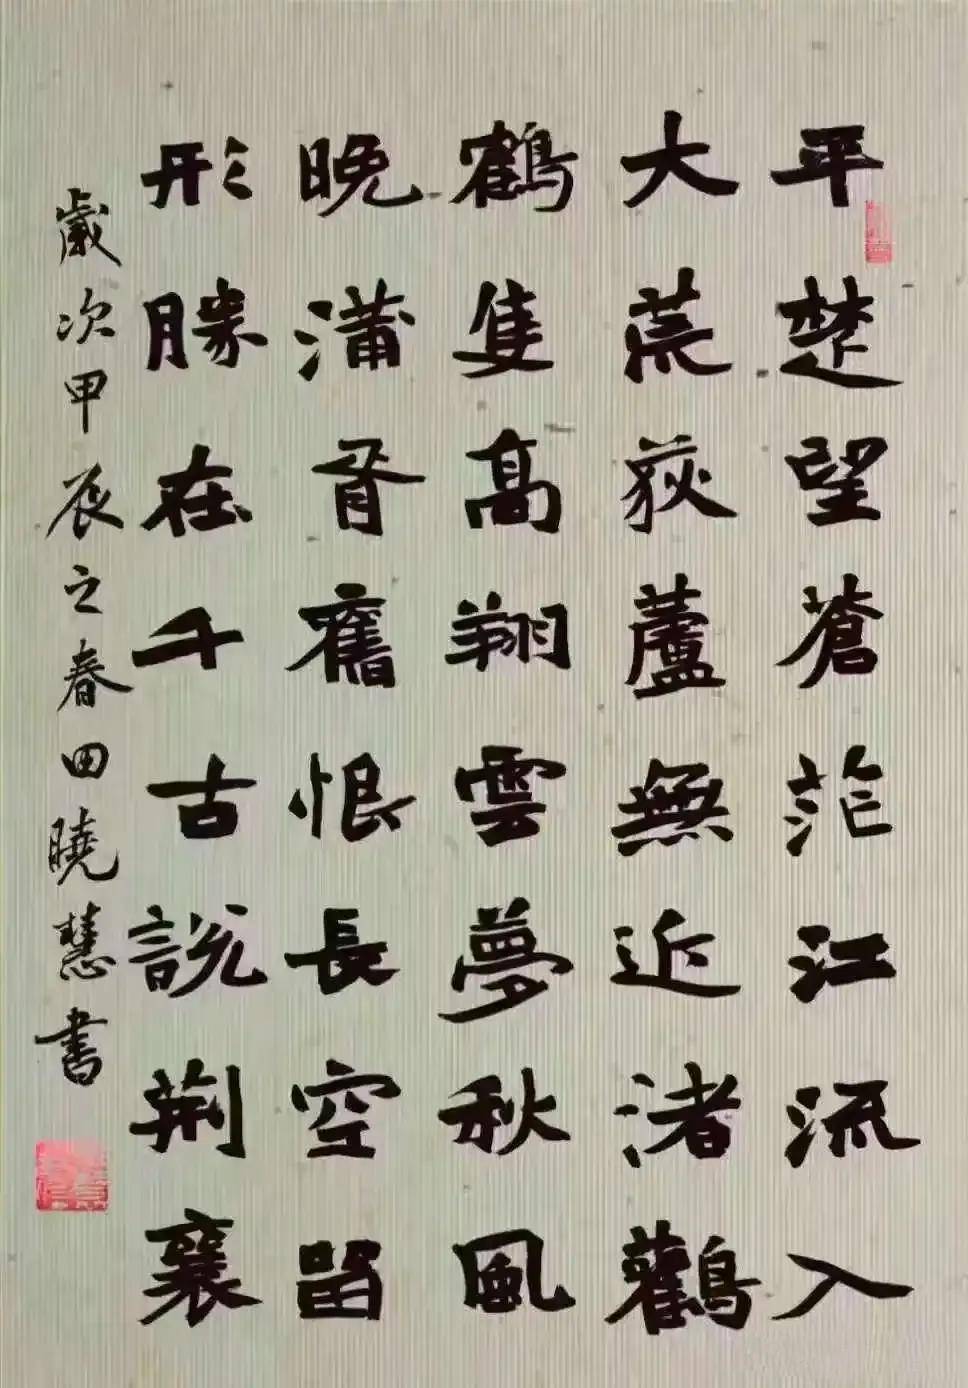 平楚望蒼茫江流入
大荒荻蘆無近渚鸛
鶴隻高翔雲夢秋風
晚蒲胥舊恨長空留
形勝在千古說荊襄
歲次甲辰之春田曉慧書